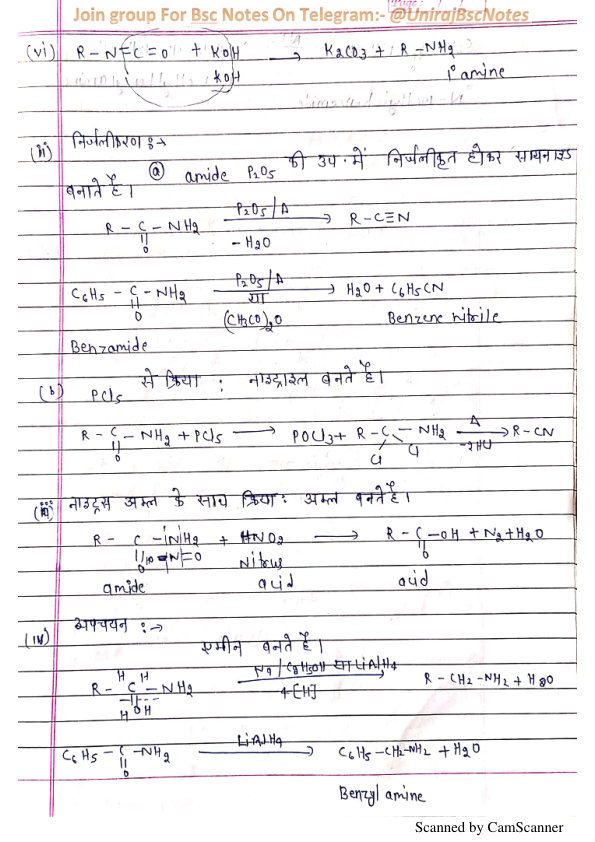 Join group For Bsc Notes On Telegram:- @UnirajBscNotes
(vi) R-N=C=O + KOH → K2CO3 + R-NH2
KOH 1° amine
(ii) निर्जलीकरण :→
(a) amide P2O5 की उप. में निर्जलीकृत होकर सायनाइड
बनाते है।
R-C-NH2 P2O5/Δ → R-C≡N
O -H2O
C6H5-C-NH2 P2O5/Δ → H2O + C6H5CN
O या
(CH3CO)2O Benzene Nitrile
Benzamide
(b) PCl5 से क्रिया : नाइट्राइल बनते है।
R-C-NH2 + PCl5 → POCl3 + R-C-NH2 Δ → R-CN
O Cl Cl -2HCl
(iii) नाइट्रस अम्ल के साथ क्रिया: अम्ल बनते है।
R-C-NH2 + HNO2 → R-C-OH + N2 + H2O
O HO-N=O Nitrus O
amide acid acid
(iv) अपचयन :→
एमीन बनते है।
R-C-NH2 Na/C2H5OH या LiAlH4 → R-CH2-NH2 + H2O
H H 4[H]
H O H
C6H5-C-NH2 LiAlH4 → C6H5-CH2-NH2 + H2O
O
Benzyl amine
Scanned by CamScanner